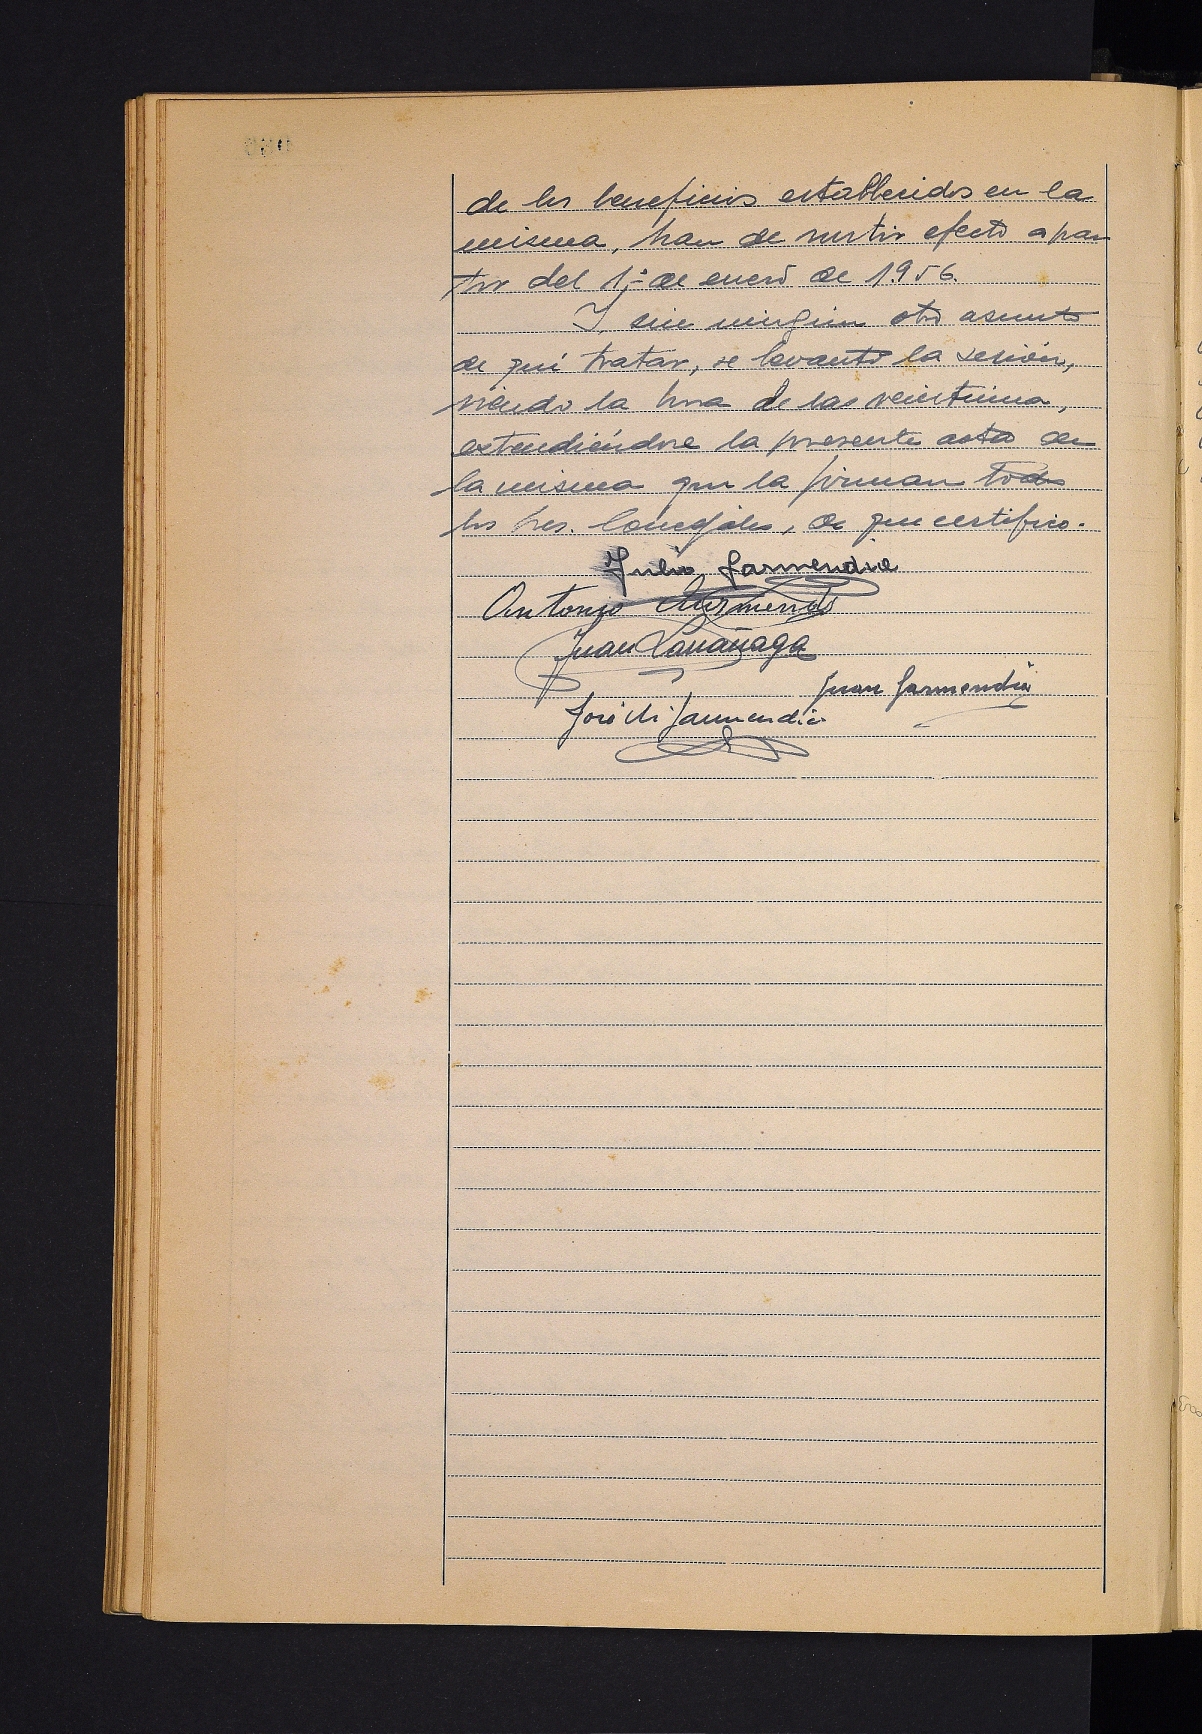 de los beneficios establecidos en la
misma, han de surtir efecto a par
tir del 1º de enero de 1.956.
Y sin ningún otro asunto
de qué tratar, se levantó la sesión,
siendo la hora de las veintiuna,
extendiéndose la presente acta de
la misma que la firman todos
los Sres. Concejales, de que certifico.
Julio Garmendia
Antonio
Juan Larrañaga
Juan Garmendia
José Mi Garmendia